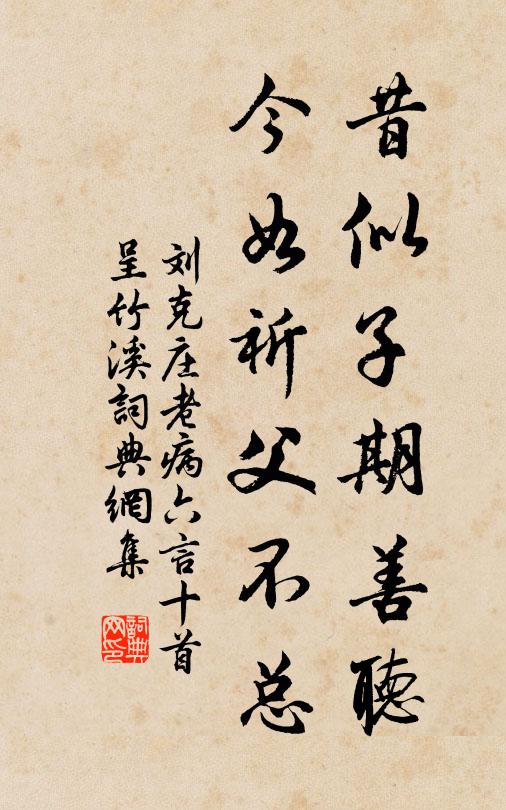 昔似子期善聽
今如祈父不总
刘克庄老病六言十首
呈竹溪詞典網集
詞典网印